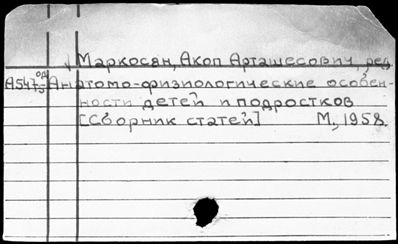 Маркосян, Акоп Арташесович, ред.
А547 Анатомо-физиологические особен-
ности детей и подростков
[Сборник статей] М., 1958.